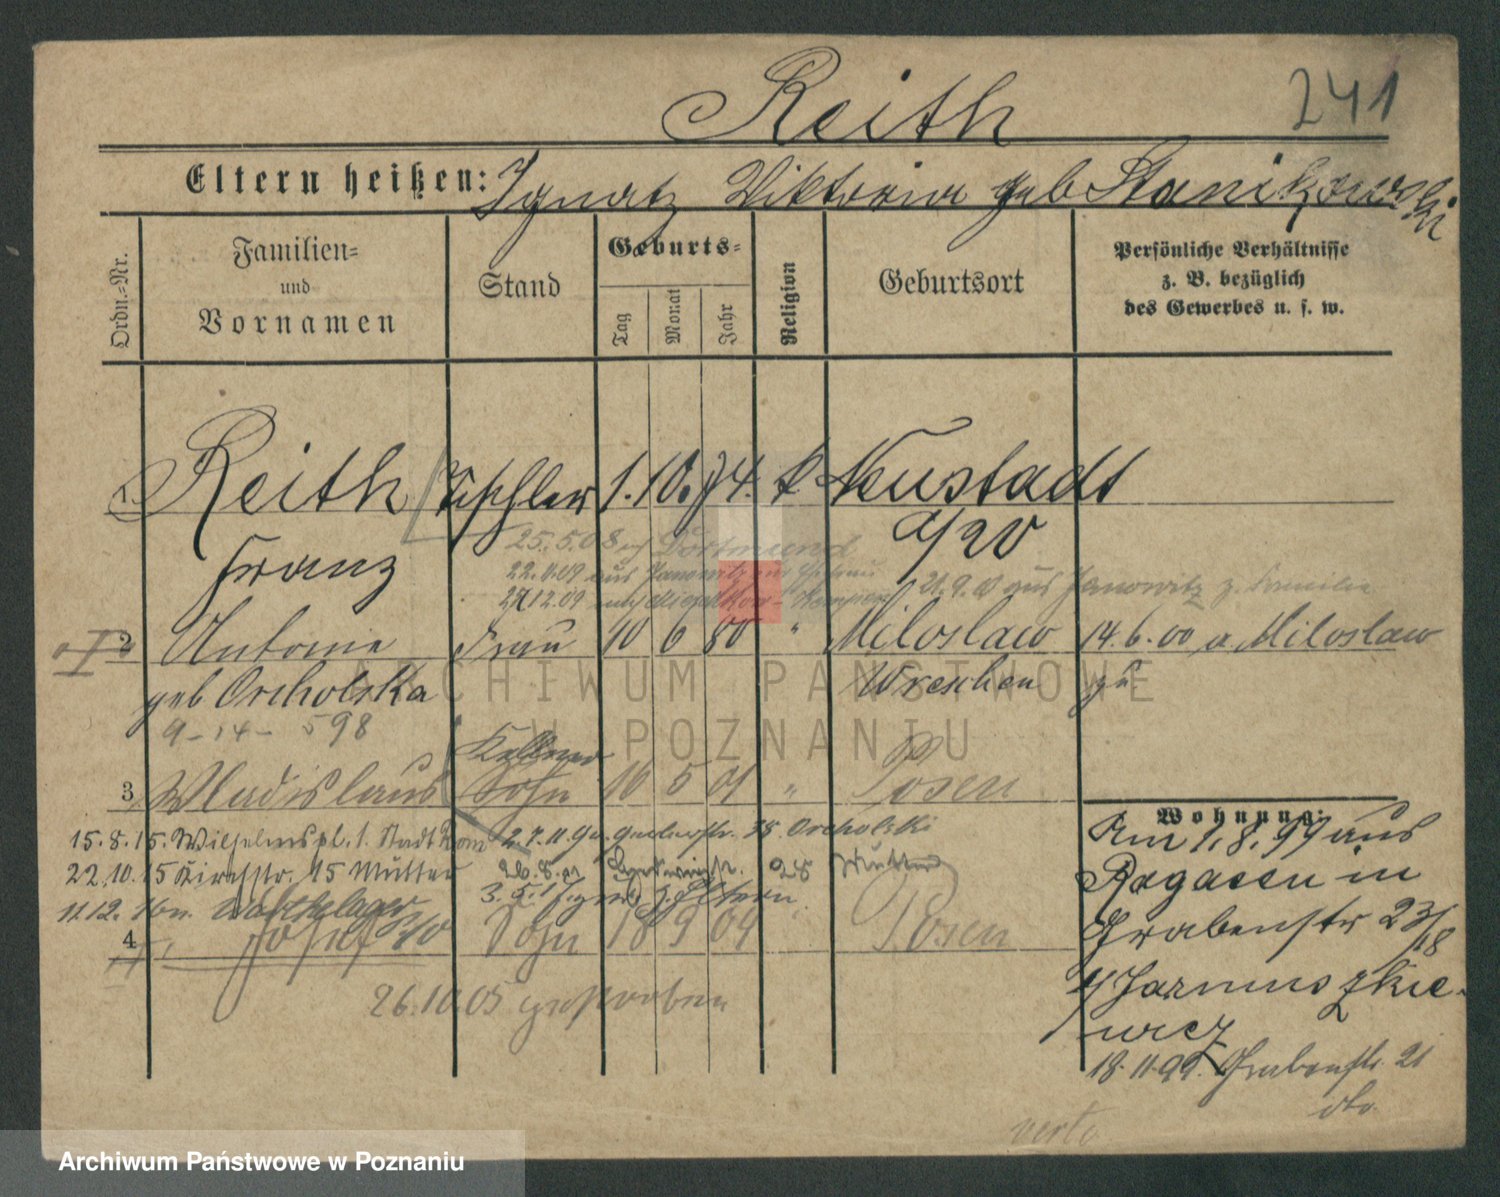 Reith
241
Eltern heißen: Ignatz Viktoria geb Stanikowski
Ordn.-Nr.
Familien-
und
Vornamen
Stand
Geburts-
Tag
Monat
Jahr
Religion
Geburtsort
Persönliche Verhältnisse
z. B. bezüglich
des Gewerbes u. s. w.
1. Reith Tischler 1. 10. 74. k. Neustadt
Franz
25.5.08 Dortmund
22. 09 aus Janowitz
21.9. aus Janowitz z. Familie
12.09 nach
2 Antonie Frau 10 6 80 " Miloslaw 14.6.00 a. Miloslaw
geb Orcholska Wreschen zu
9-14-598
Kellner
3 Wladislaus Sohn 16 5 01 " Posen
Wohnung:
15.8.15. Wilhelmspl. 1. Stadt 2.7.11. 38 Orcholski
22.10.15 Kirchstr. 15 Mutter 28 Mutter
3.5. z. Eltern
11.12.
4 Josef Sohn 18 9 04 " Posen
26.10.05 gestorben
Am 1.8.99 aus
Ragasen in
Grabenstr 23/18
b/ Jarmuszkie-
wicz
18.11.99. Grabenstr. 21
dto
verte
ARCHIWUM PAŃSTWOWE
W POZNANIU
Archiwum Państwowe w Poznaniu